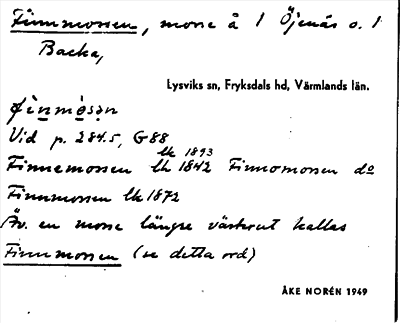 Finnmossen, mosse å 1 Öjenäs o. 1
Backa,
Lysviks sn, Fryksdals hd, Värmlands län.
Vid p. 284.5, G88
lk 1893
Finnemossen lk 1842 Finnomossen do
Finnmossen lk 1872
Äv. en mosse längre västerut kallas
Finnmossen (se detta ord)
ÅKE NORÉN 1949